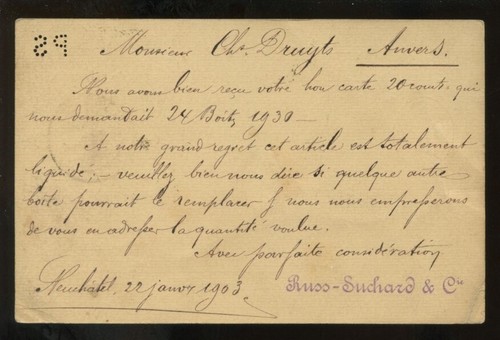 Monsieur Chs. Druyts Anvers.
Nous avons bien reçu votre bon carte 20 cour. qui
nous demandait 24 Boît, 1930 —
A notre grand regret cet article est totalement
liquidé; — veuillez bien nous dire si quelque autre
boîte pourrait le remplacer & nous nous empresserons
de vous en adresser la quantité voulue.
Avec parfaite considération
Neuchatel, 22 janvr 1903.
Russ-Suchard & Cie